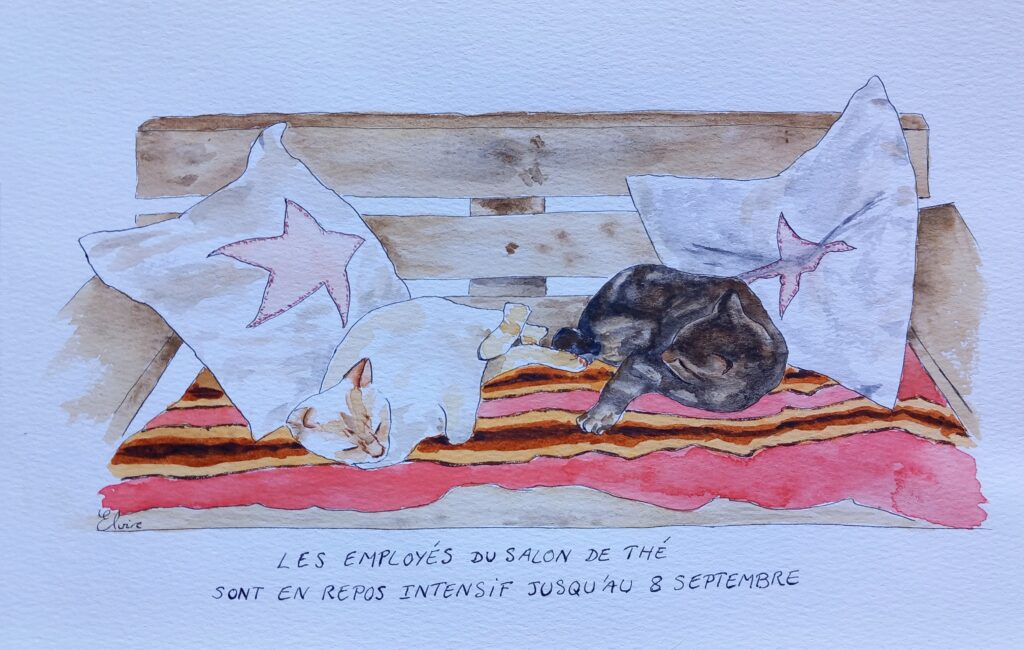 Elvire
LES EMPLOYÉS DU SALON DE THÉ
SONT EN REPOS INTENSIF JUSQU'AU 8 SEPTEMBRE